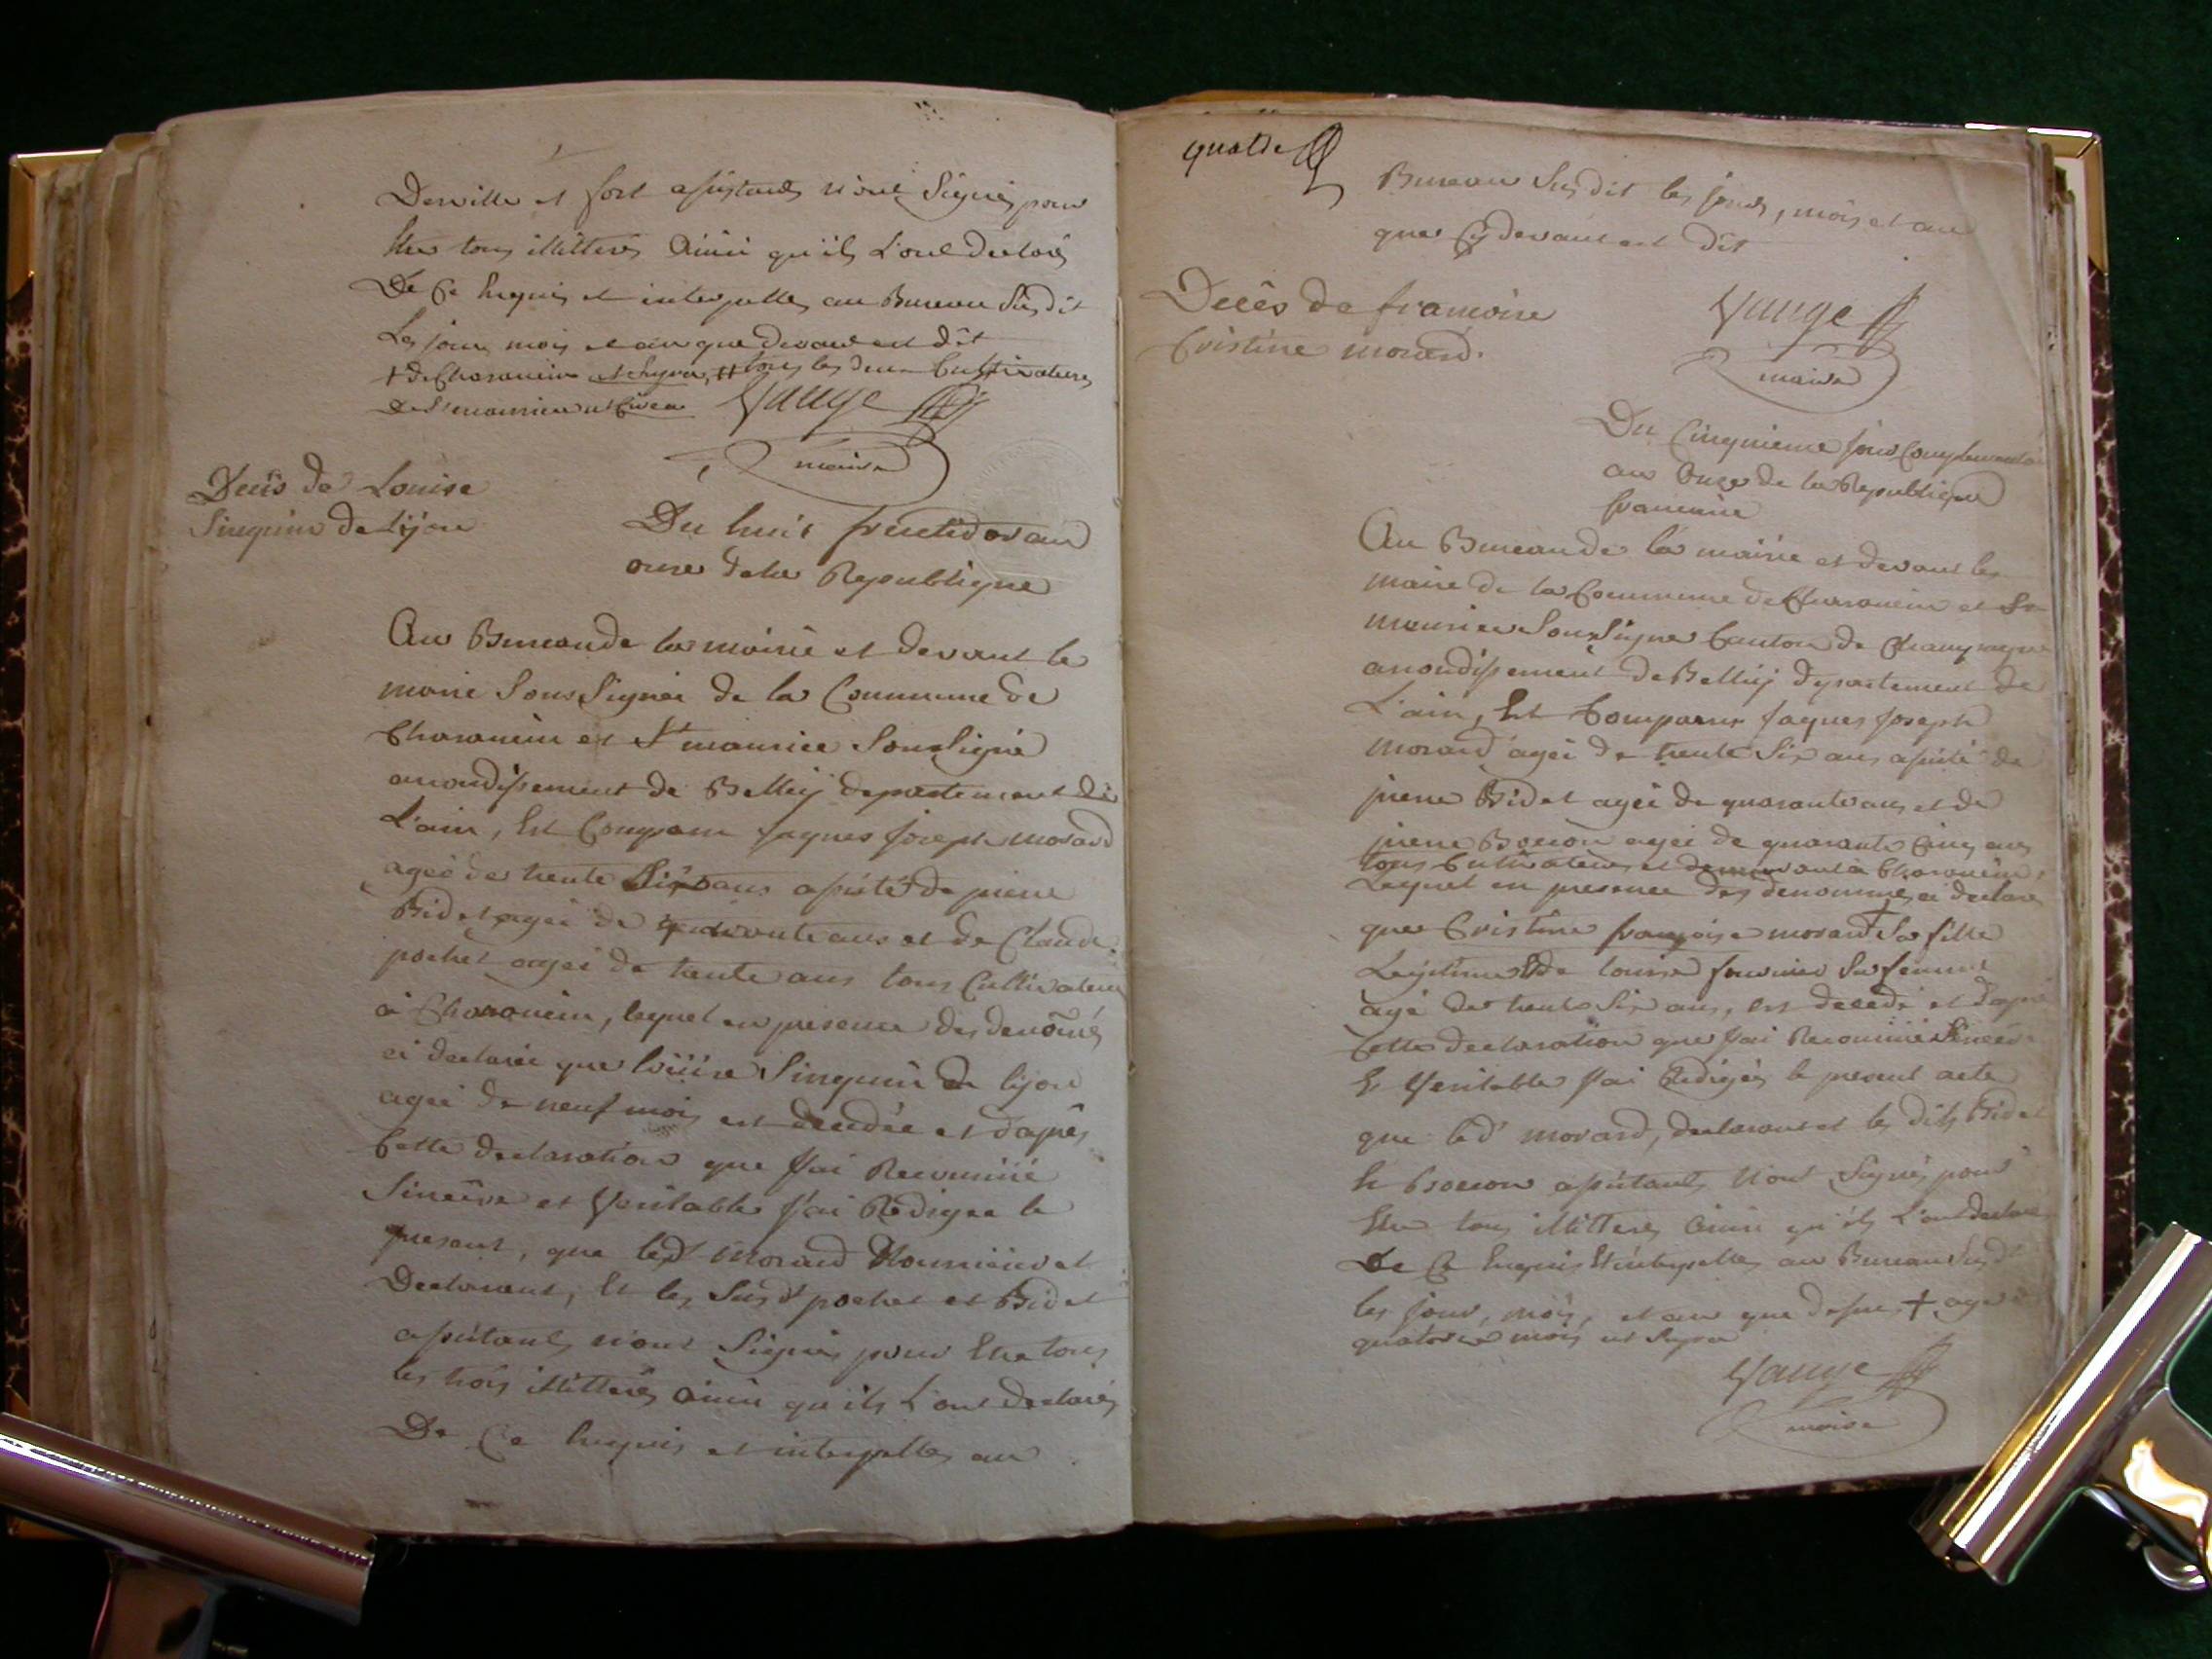 Derville et fort assistants n'ont Signés pour
être tous illitteres Ainsi qu'ils L'ont declaré
De Ce Requis et interpelles au Bureau Susdit
Les jour mois et an que devant est dit
+ de Charancin ++ tous les deux Cultivateurs
de St maurice
Vauge
maire
Decès de Louise
Singuin de Lijon
Du huit fructidor an
onze de la Republique
Au Bureau de la mairie et devant le
maire Sous Signé de la Commune de
Charancin et St maurice Sousigné
arrondissement de Belleij departement de
L'ain, Est Comparu jaques joseph morard
agée de trente Six ans assisté de pierre
Bidet agée de quarante ans et de Claude
pochet agée de trente ans tous Cultivateurs
à Charancin, lequel en presence des denomés
a declarée que Louise Singuin de lijon
agée de neuf mois est decedée et d'apres
Cette declaration que J'ai Reconnüe
Sincère et Veritable J'ai Rédigée le
present, que led morard Nourricier et
Declarant, Et les Susd pochet et Bidet
assistants n'ont Signés pour Etre tous
les trois illitterés Ainsi qu'ils L'ont declarés
De Ce Requis et interpelles au
quatre
Bureau Susdit les jours, mois et an
que Cÿ devant est dit
Vauge
maire
Decès de francoise
Cristine morard.
Du Cinquieme jour Complementaire
an Onze de la Republique
francaise
Au Bureau de la mairie et devant le
maire de la Commune de Charancin et St
maurice Sous Signé Canton de Champagne
arrondissement de Belleij departement de
L'ain, Est Comparu jaques joseph
morard agée de trente Six ans assisté de
pierre Bidet agée de quarante ans et de
pierre Boccon agée de quarante Cinq ans
tous Cultivateurs et demeurant à Charancin,
Lequel en presence des denommés a declaré
que Cristine françoise morard + Sa fille
Legitime & de louise fournier Sa femme
agé de trente Six ans, est decedé et d'apres
Cette declaration que J'ai Reconnüe Sincère
Et Veritable J'ai Redigés le present acte
que led morard, declarant et les dits Bidet
Et Boccon assistants N'ont Signés pour
Etre tous illitteres Ainsi qu'ils L'ont declaré
De Ce Requis Et interpelles au Bureau Susdit
les jour, mois, et an que dessus + agée de
quatorze mois
Vauge
maire